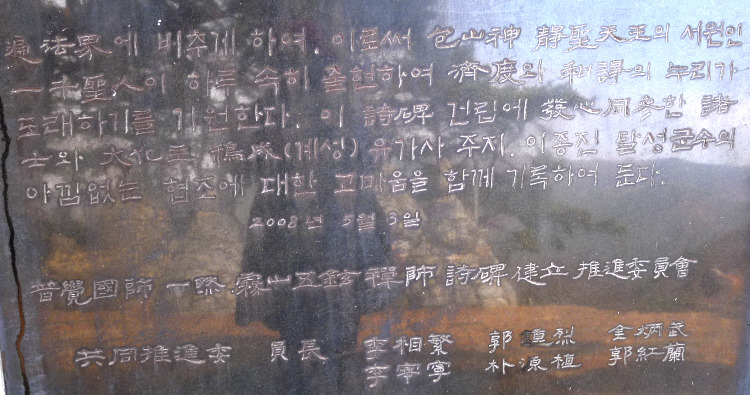 遍法界에 비추게 하여, 이로써 包山神 靜聖天王의 서원인
一千聖人이 하루 속히 출현하여 濟度와 和譯의 누리가
도래하기를 기원한다. 이 詩碑 건립에 發心同參한 諸
士와 大化主 (계성) 유가사 주지, 이종진 달성군수의
아낌없는 협조에 대한 고마움을 함께 기록하여 둔다.
2008년 5월 3일
普覺國師 一然 霧山五鉉 禪師 詩碑 建立 推進委員會
共同推進委 員長 李相繁 郭鎭烈 金炳武
李宰寧 朴源植 郭紅蘭